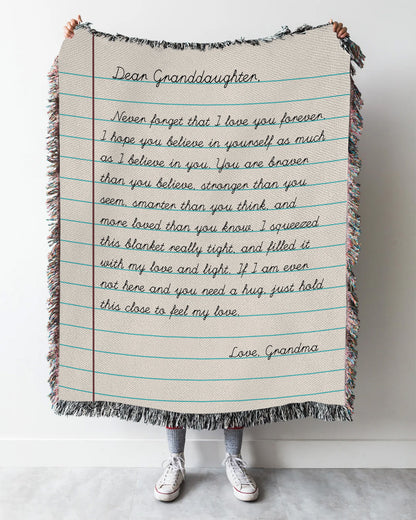 Dear Granddaughter,
Never forget that I love you forever.
I hope you believe in yourself as much
as I believe in you. You are braver
than you believe, stronger than you
seem, smarter than you think, and
more loved than you know. I squeezed
this blanket really tight, and filled it
with my love and light. If I am ever
not here and you need a hug, just hold
this close to feel my love.
Love, Grandma